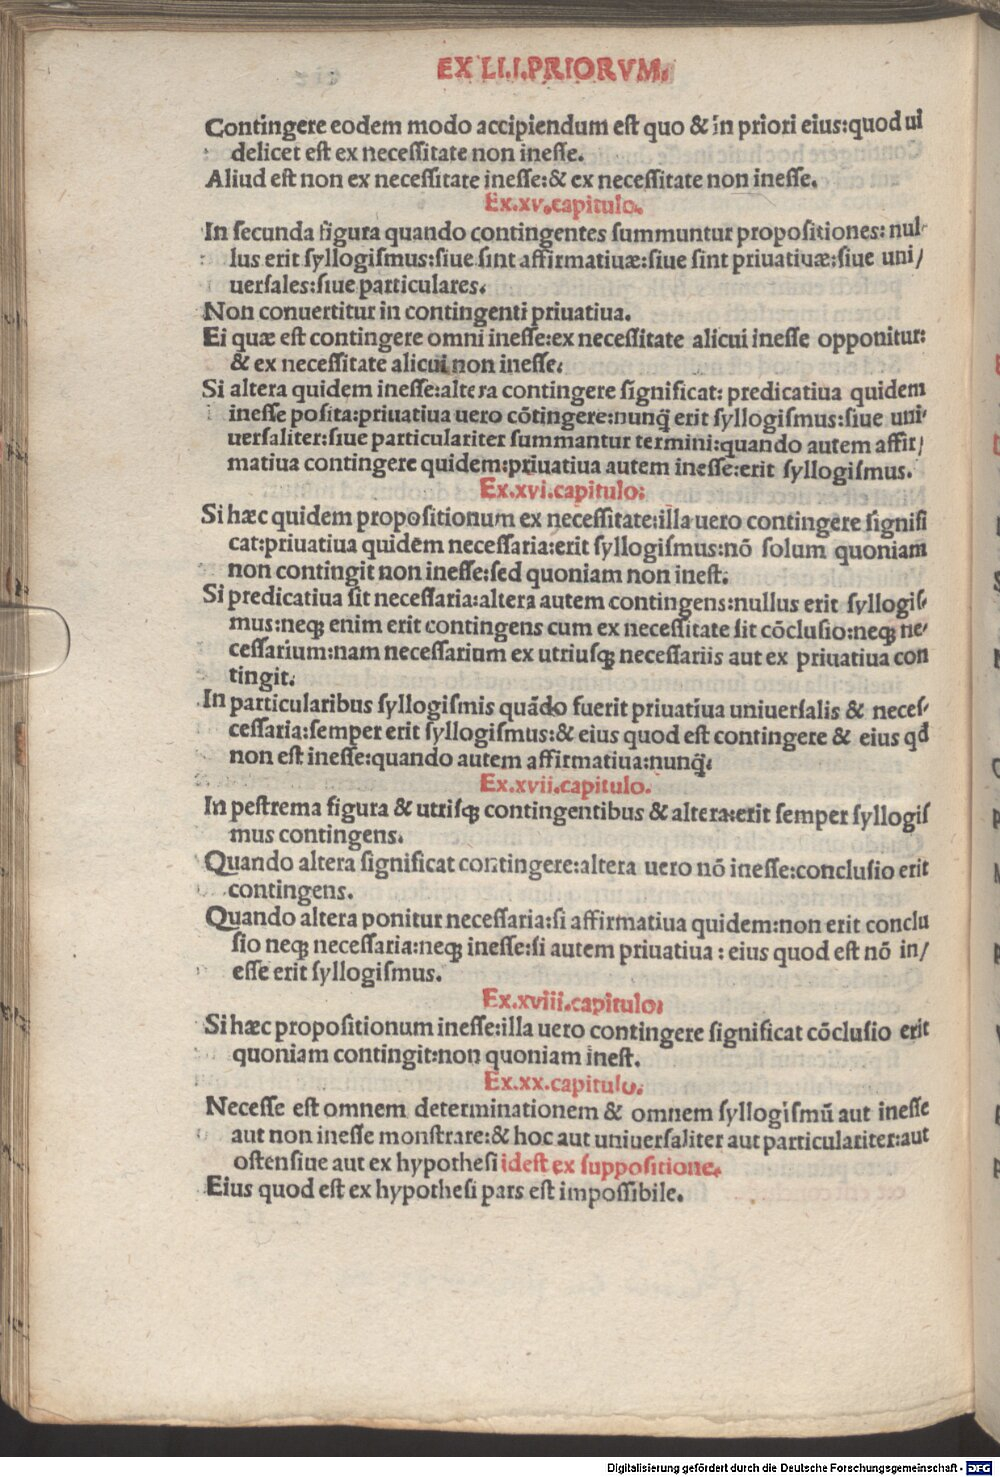 EX LI.I.PRIORVM.
Contingere eodem modo accipiendum est quo & in priori eius:quod ui
delicet est ex necessitate non inesse.
Aliud est non ex necessitate inesse:& ex necessitate non inesse.
Ex.xv.capitulo.
In secunda figura quando contingentes summuntur propositiones: nul-
lus erit syllogismus:siue sint affirmatiuæ:siue sint priuatiuæ:siue uni/
uersales:siue particulares.
Non conuertitur in contingenti priuatiua.
Ei quæ est contingere omni inesse:ex necessitate alicui inesse opponitur:
& ex necessitate alicui non inesse.
Si altera quidem inesse:altera contingere significat: predicatiua quidem
inesse posita:priuatiua uero cõtingere:nunq̃ erit syllogismus:siue uni-
uersaliter:siue particulariter summantur termini:quando autem affir/
matiua contingere quidem:priuatiua autem inesse:erit syllogismus.
Ex.xvi.capitulo:
Si hæc quidem propositionum ex necessitate:illa uero contingere signifi
cat:priuatiua quidem necessaria:erit syllogismus:nõ solum quoniam
non contingit non inesse:sed quoniam non inest.
Si predicatiua sit necessaria:altera autem contingens:nullus erit syllogis-
mus:neqꝫ enim erit contingens cum ex necessitate sit cõclusio:neqꝫ ne-
cessarium:nam necessarium ex utriusqꝫ necessariis aut ex priuatiua con
tingit.
In particularibus syllogismis quãdo fuerit priuatiua uniuersalis & neces-
cessaria:semper erit syllogismus:& eius quod est contingere & eius qd
non est inesse:quando autem affirmatiua:nunq̃.
Ex.xvii.capitulo.
In pestrema figura & utrisqꝫ contingentibus & altera:erit semper syllogis
mus contingens.
Quando altera significat contingere:altera uero nõ inesse:conclusio erit
contingens.
Quando altera ponitur necessaria:si affirmatiua quidem:non erit conclu
sio neqꝫ necessaria:neqꝫ inesse:si autem priuatiua : eius quod est nõ in/
esse erit syllogismus.
Ex.xviii.capitulo:
Si hæc propositionum inesse:illa uero contingere significat cõclusio erit
quoniam contingit:non quoniam inest.
Ex.xx.capitulo.
Necesse est omnem determinationem & omnem syllogismũ aut inesse
aut non inesse monstrare:& hoc aut uniuersaliter aut particulariter:aut
ostensiue aut ex hypothesi idest ex suppositione.
Eius quod est ex hypothesi pars est impossibile.
Digitalisierung gefördert durch die Deutsche Forschungsgemeinschaft - DFG